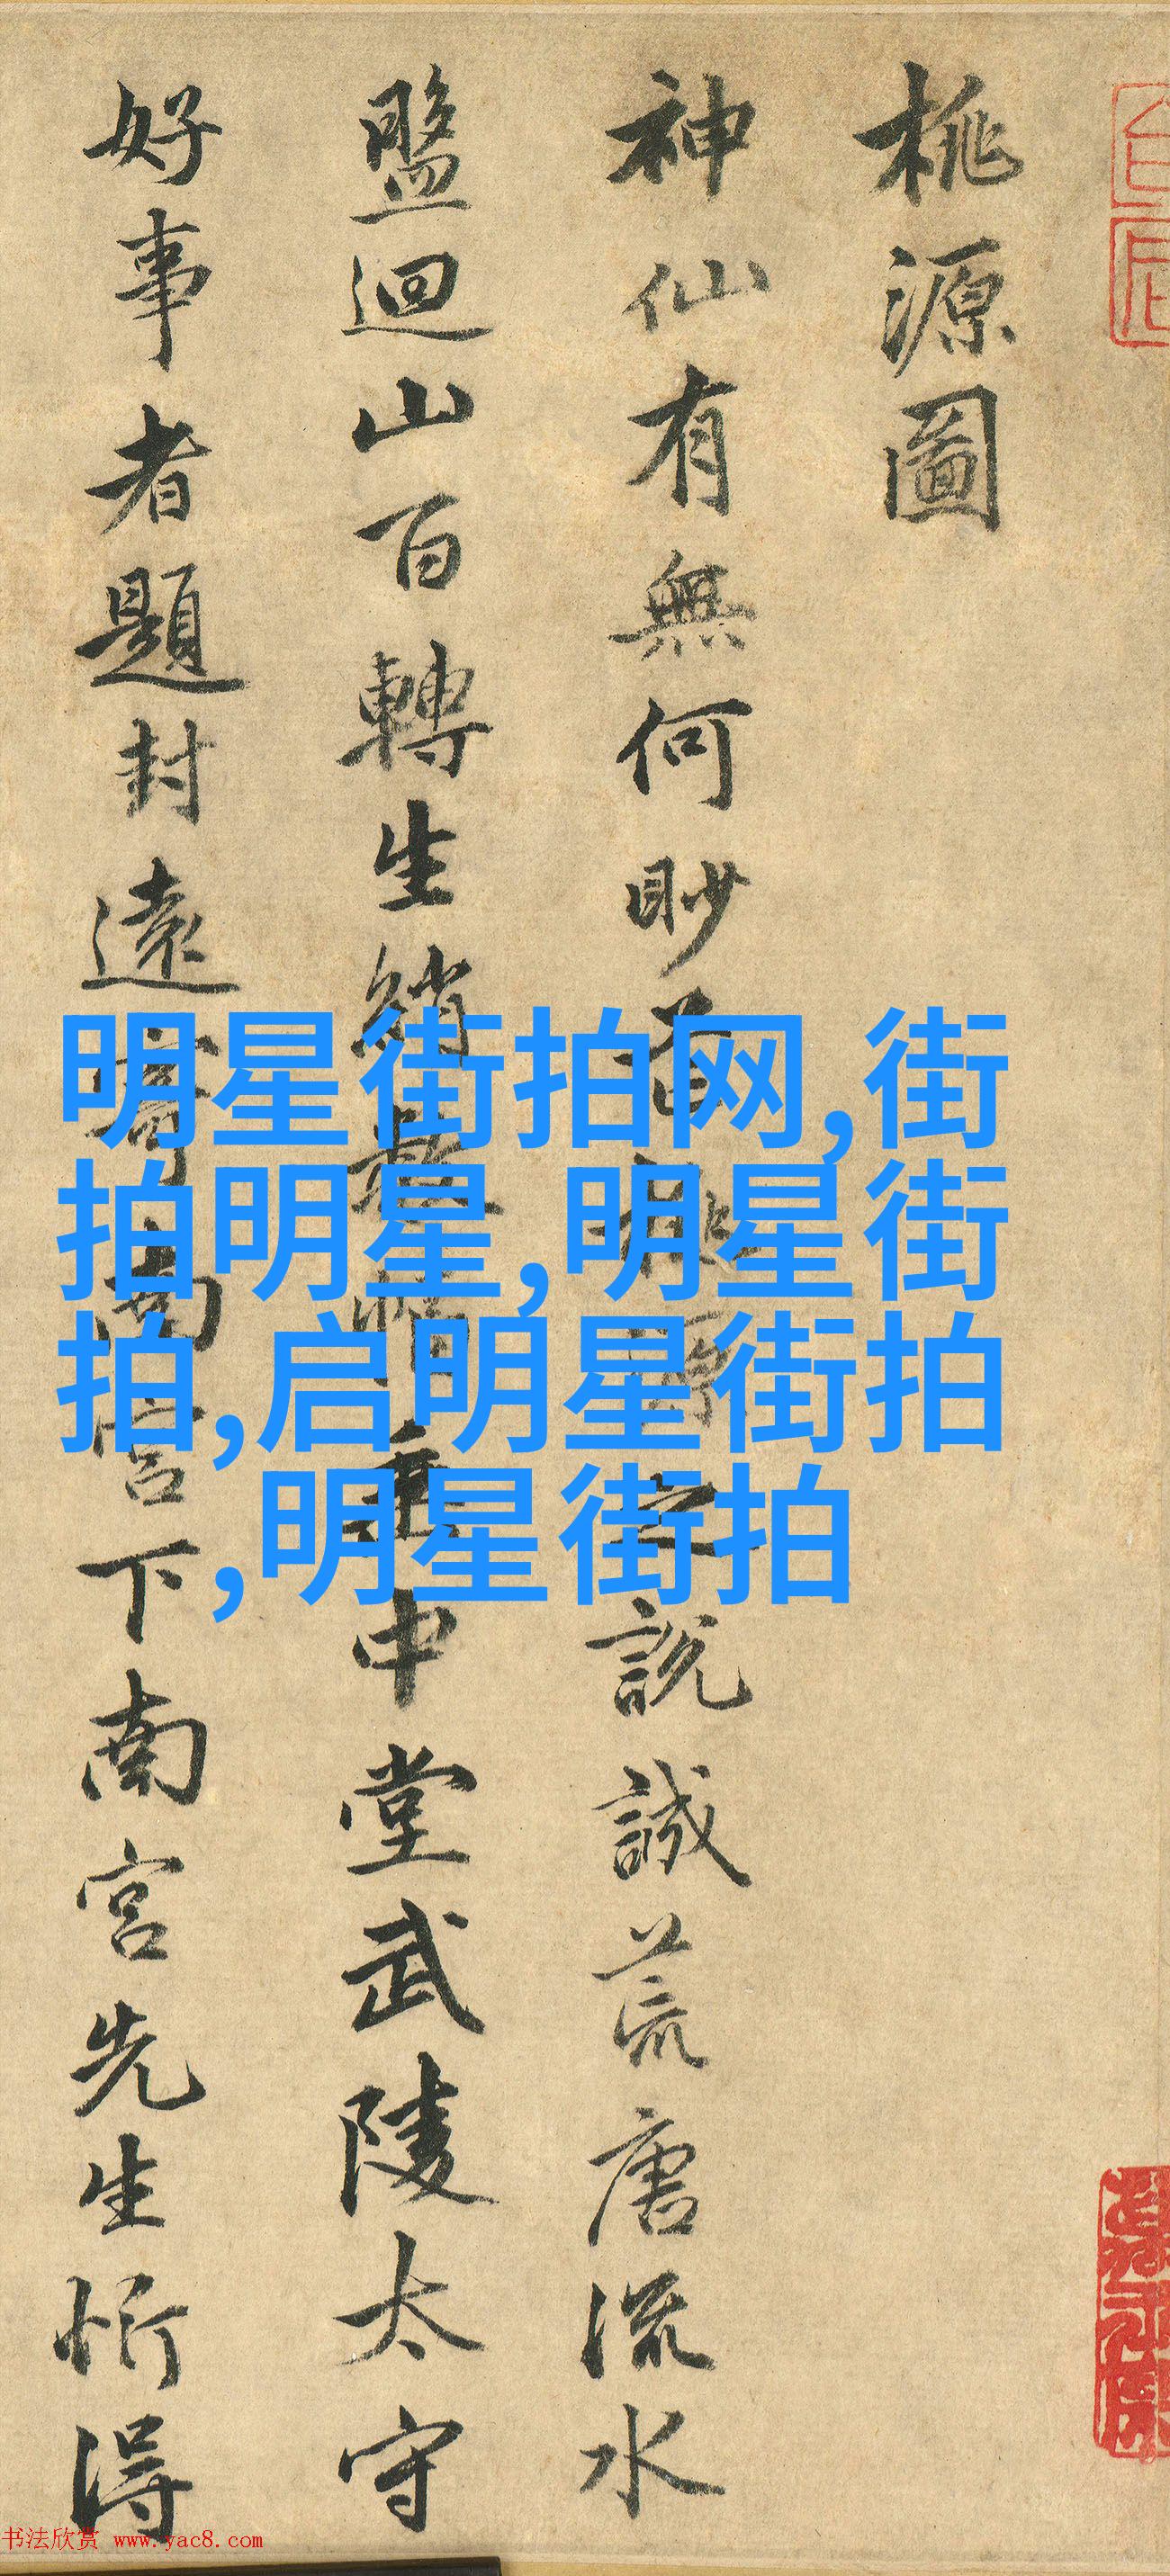 桃源圖
神仙有無何眇桃源之說誠荒唐流水
盤迴山百轉生綃數幅垂中堂武陵太守
好事者題封遠寄南宮下南宮先生忻得
明星街拍网,街
拍明星,明星街
拍,启明星街拍
,明星街拍
书法欣赏 www.yac8.com